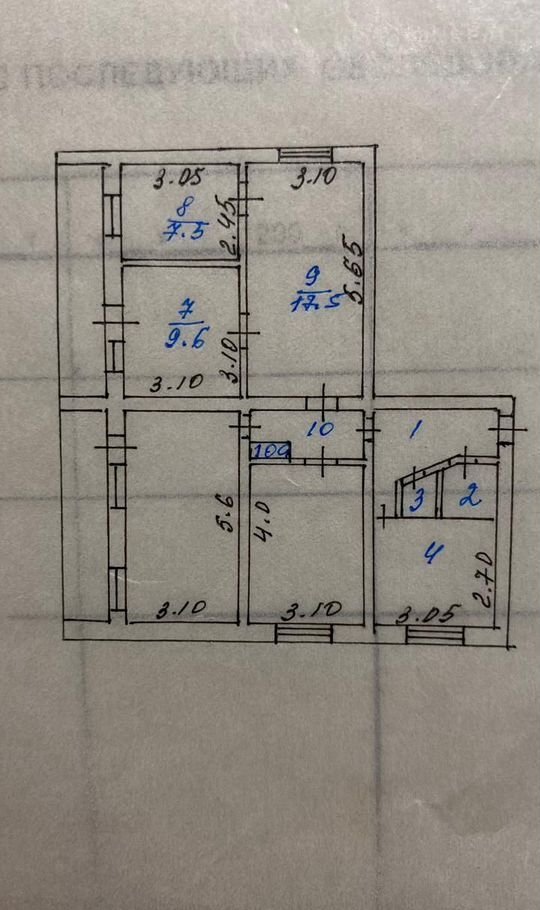 ПОСЛЕДУЮЩИХ
3.05
3.10
8
7.5
2.45
5.65
9
17.5
7
9.6
3.10
3.10
10
1
10a
3
2
5.6
4.0
4
2.70
3.10
3.10
3.05